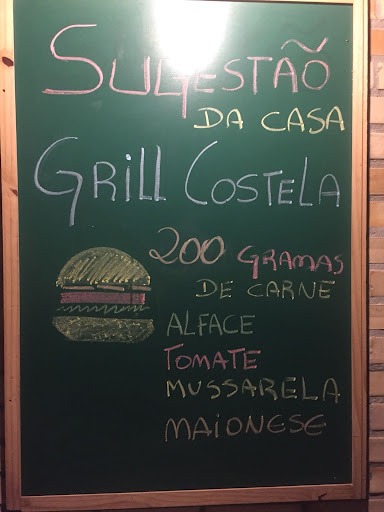 SUGESTÃO
DA CASA
GRILL COSTELA
200 GRAMAS
DE CARNE
ALFACE
TOMATE
MUSSARELA
MAIONESE